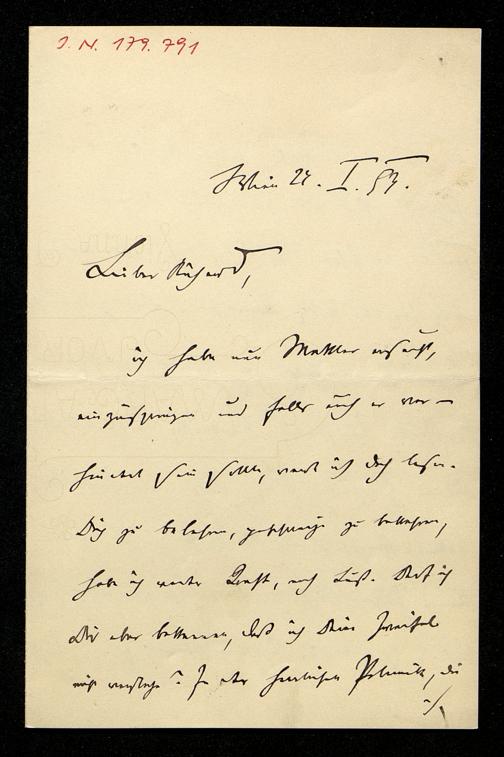 I. N. 179.791
Wien 22. I. 97.
Lieber Richard,
ich habe nun Mahler ersucht,
einzuspringen und falls auch er ver-
hindert sein sollte, werde ich doch lesen.
Dich zu belehren, geschweige zu bekehren,
habe ich weder Kraft, noch Lust. Darf ich
Dir aber bekennen, daß ich Deine Zweifel
nicht verstehe? In der herrlichen Polemik, die